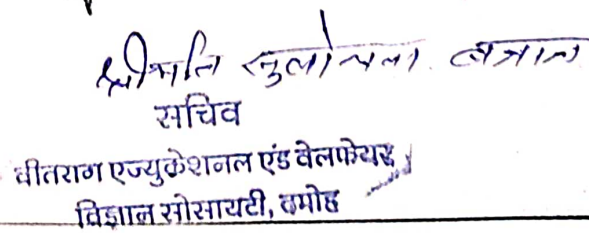 श्रीमति सुलोचना बजाज
सचिव
वीतराग एज्युकेशनल एंड वेलफेयर
विज्ञान सोसायटी, दमोह